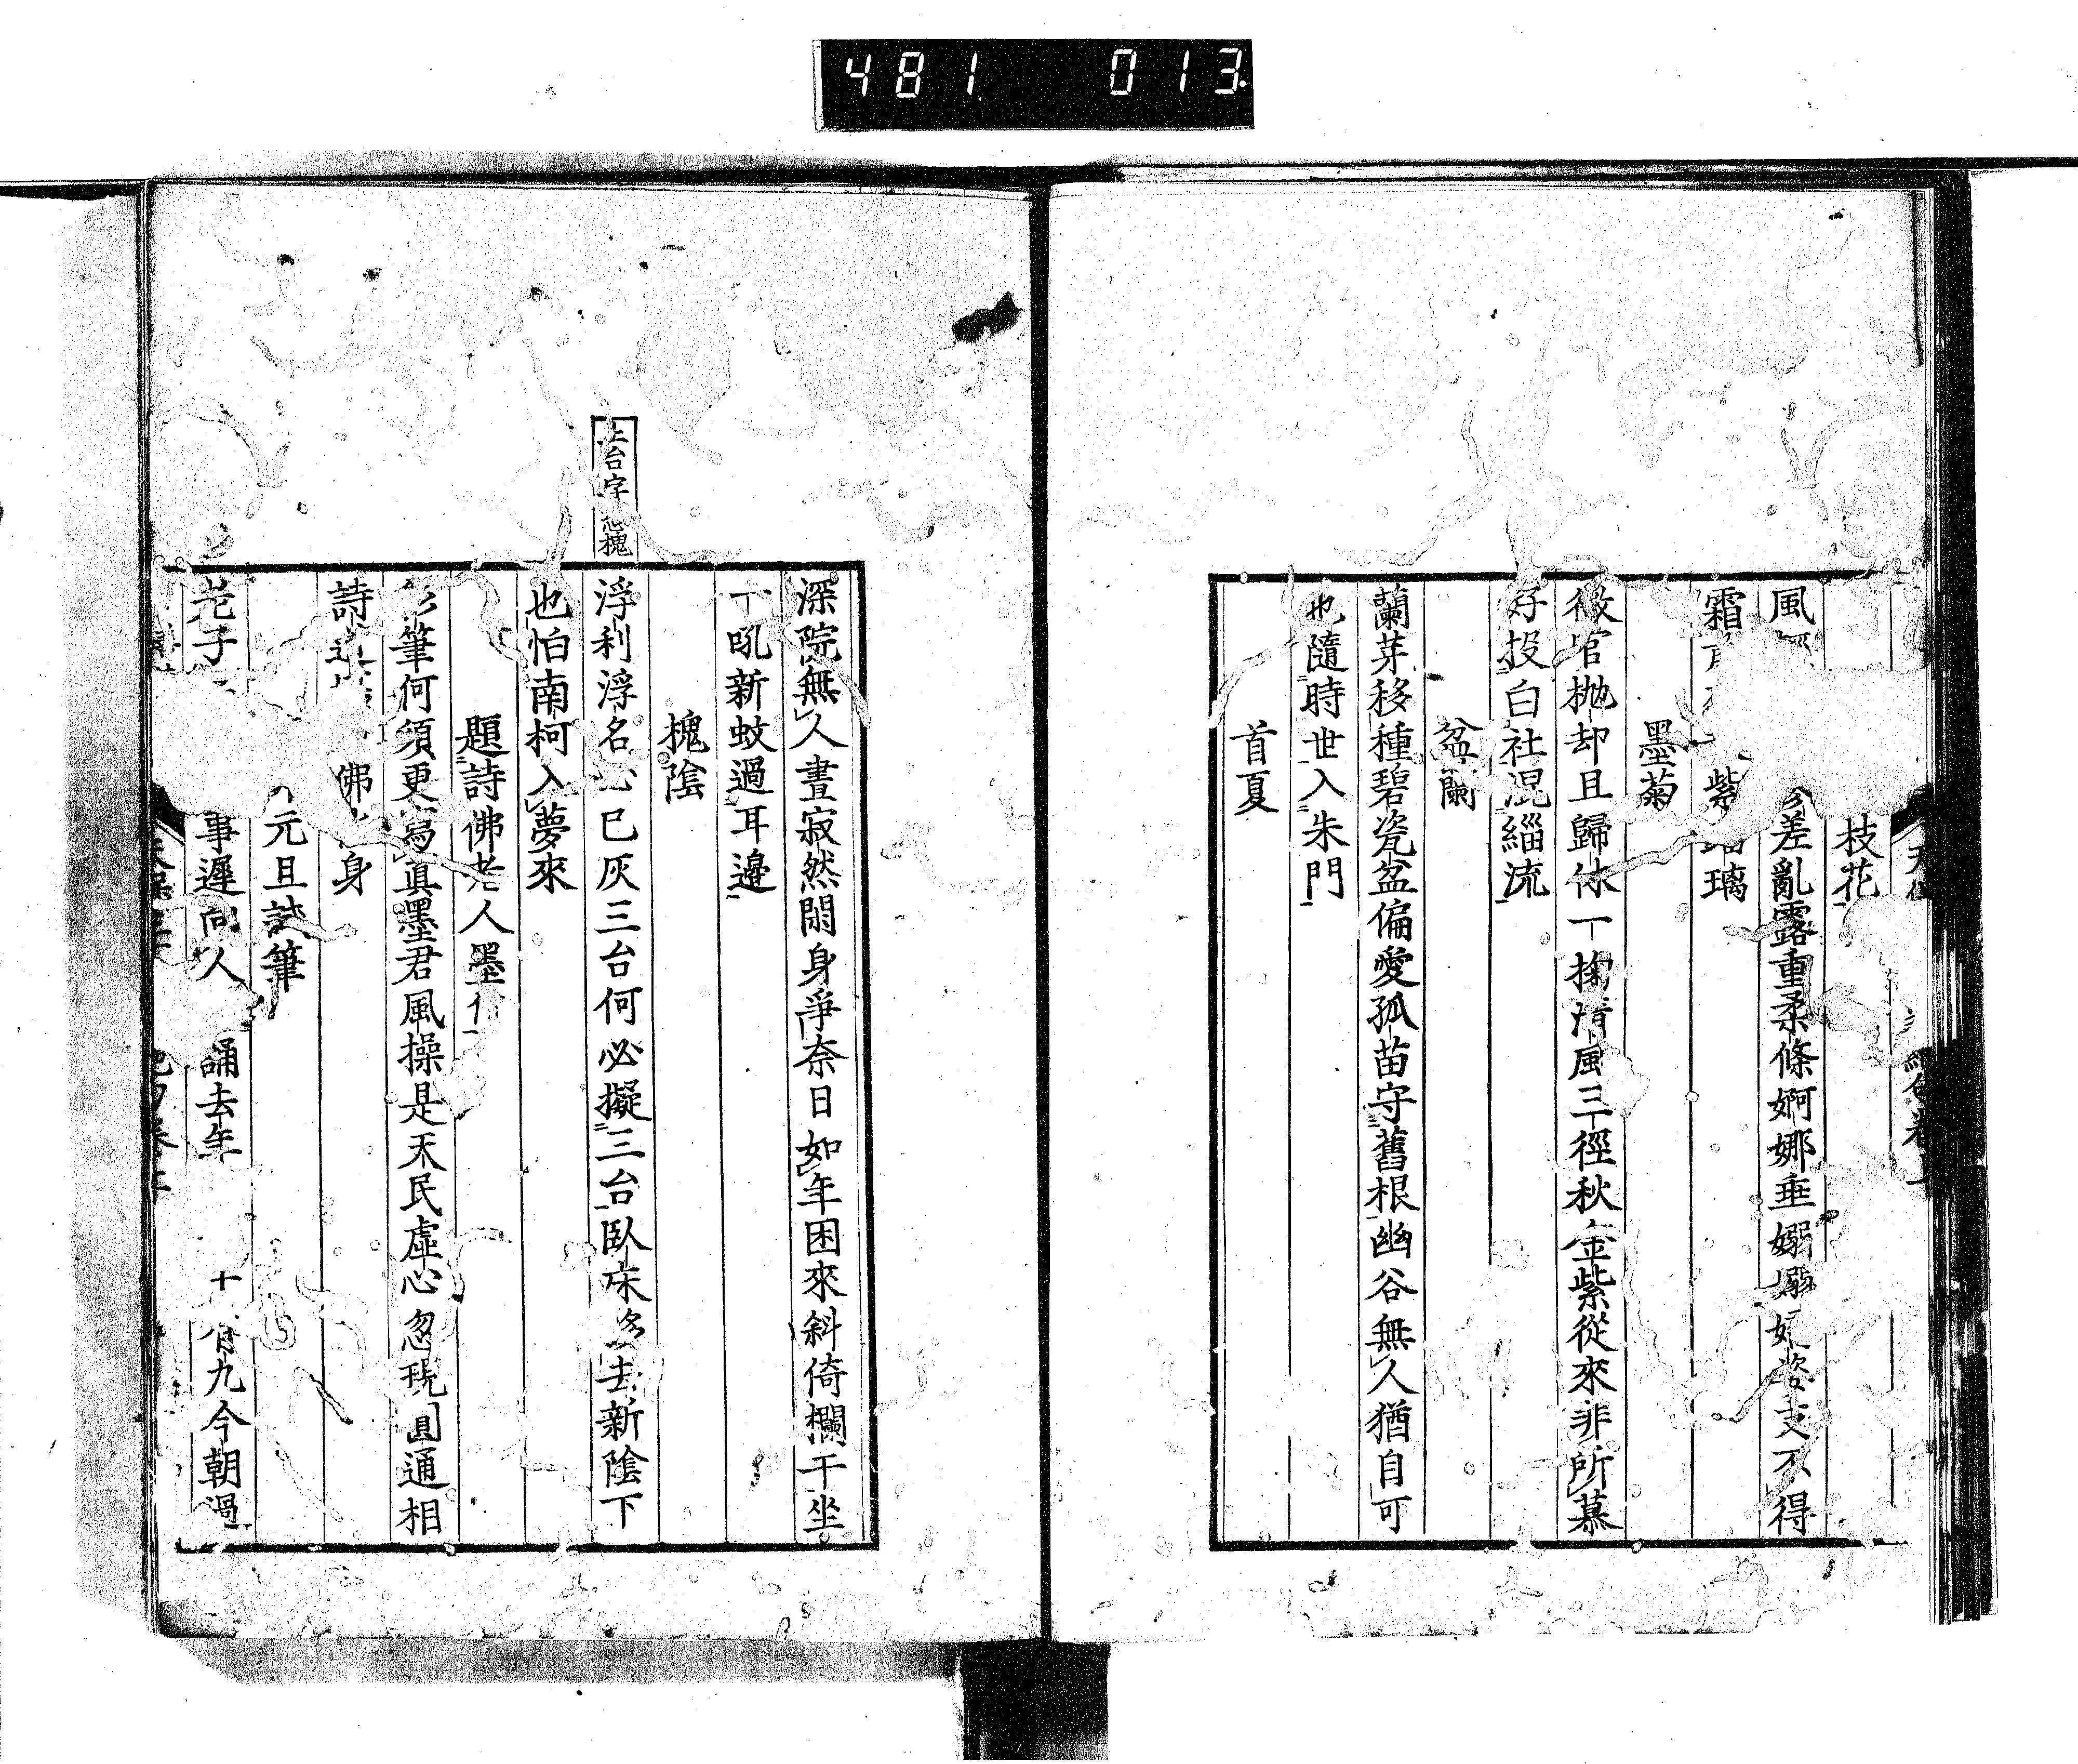 481 013
枝花
風 差亂露重柔條婀娜垂嫋嫋 不得
霜 紫 璃
墨菊
微官拋却且歸休一掬清風三徑秋金紫從來非所慕
好投白社混緇流
盆蘭
蘭芽移種碧瓷盆偏愛孤苗守舊根幽谷無人猶自可
也隨時世入朱門
首夏
深院無人晝寂然閑身爭奈日如年困來斜倚欄干坐
吼新蚊過耳邊
槐陰
台字 槐
浮利浮名心已灰三台何必擬三台臥床 去新陰下
也怕南柯入夢來
題詩佛老人墨竹
筆何須更寫眞墨君風操是天民虛心忽現圓通相
詩 佛 身
元旦試筆
老子 事遲向人 誦去年 十有九今朝過